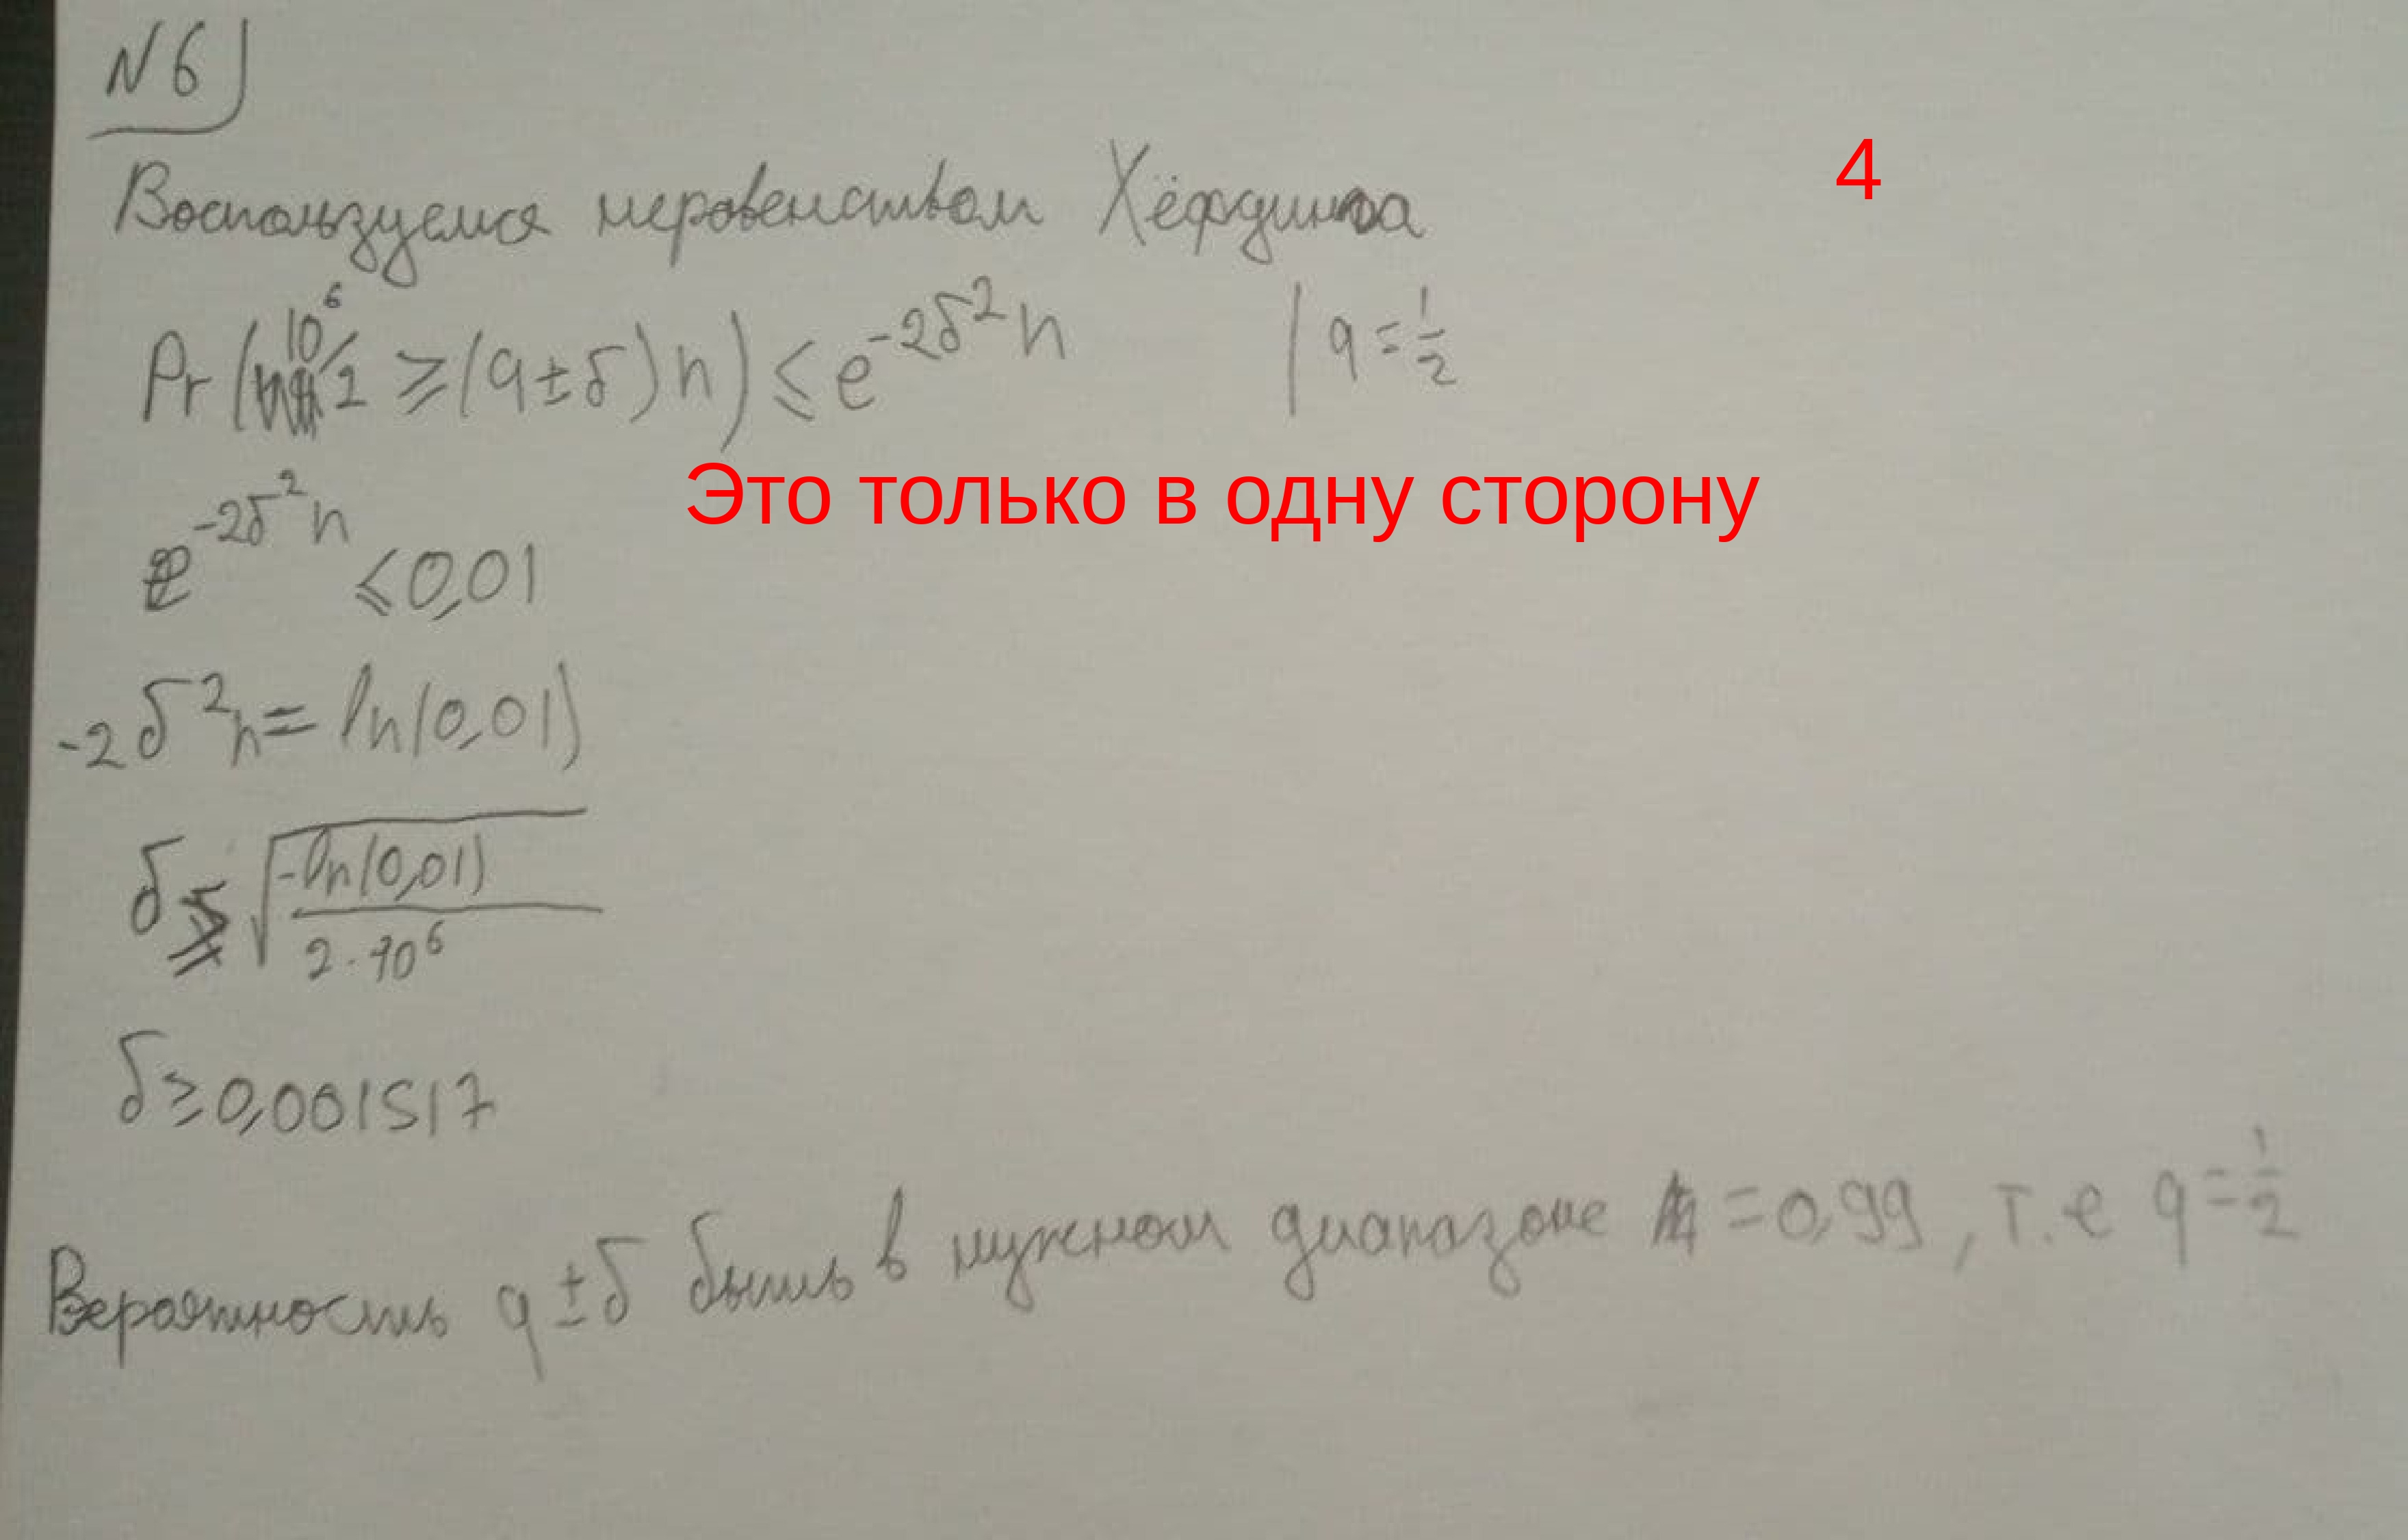 N6)
4
Воспользуемся неравенством Хёфдинга
Pr(10⁶/2 ≥ (q±δ)n) ≤ e^{-2δ²n} | q = 1/2
Это только в одну сторону
e^{-2δ²n} ≤ 0,01
-2δ²n = ln(0,01)
δ ≥ √(-ln(0,01) / 2·10⁶)
δ ≥ 0,001517
Вероятность q±δ быть в нужном диапазоне = 0,99, т.е q = 1/2